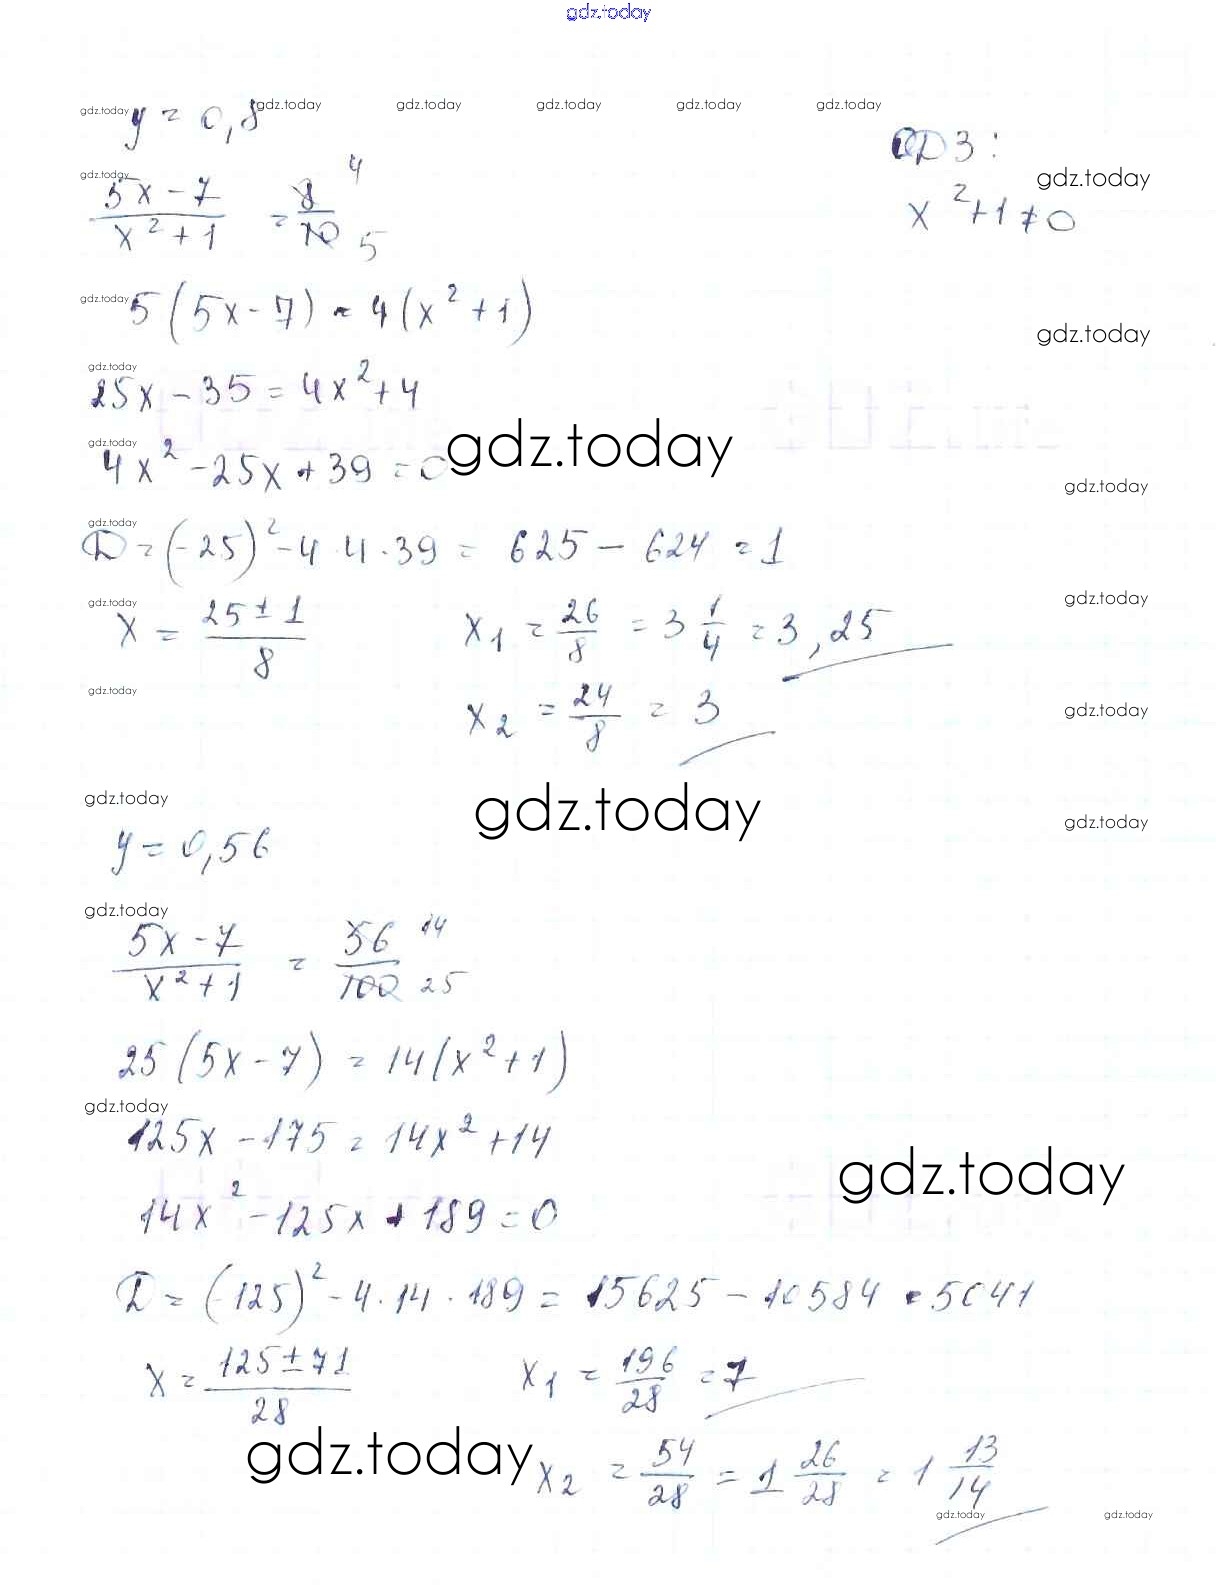 gdz.today
y = 0,8 gdz.today gdz.today gdz.today gdz.today gdz.today gdz.today
ОДЗ:
gdz.today
(5x - 7)/(x² + 1) = 8/10 4 5
gdz.today
x² + 1 ≠ 0
gdz.today 5(5x - 7) = 4(x² + 1)
gdz.today
gdz.today
25x - 35 = 4x² + 4
gdz.today
gdz.today
4x² - 25x + 39 = 0
gdz.today
gdz.today
D = (-25)² - 4 · 4 · 39 = 625 - 624 = 1
gdz.today
gdz.today
x = (25 ± 1)/8 x₁ = 26/8 = 3 1/4 = 3,25
gdz.today
gdz.today
x₂ = 24/8 = 3
gdz.today
gdz.today
gdz.today
y = 0,56
gdz.today
(5x - 7)/(x² + 1) = 56/100 14 25
25(5x - 7) = 14(x² + 1)
gdz.today
125x - 175 = 14x² + 14
gdz.today
14x² - 125x + 189 = 0
D = (-125)² - 4 · 14 · 189 = 15625 - 10584 = 5041
x = (125 ± 71)/28 x₁ = 196/28 = 7
gdz.today
x₂ = 54/28 = 1 26/28 = 1 13/14
gdz.today gdz.today